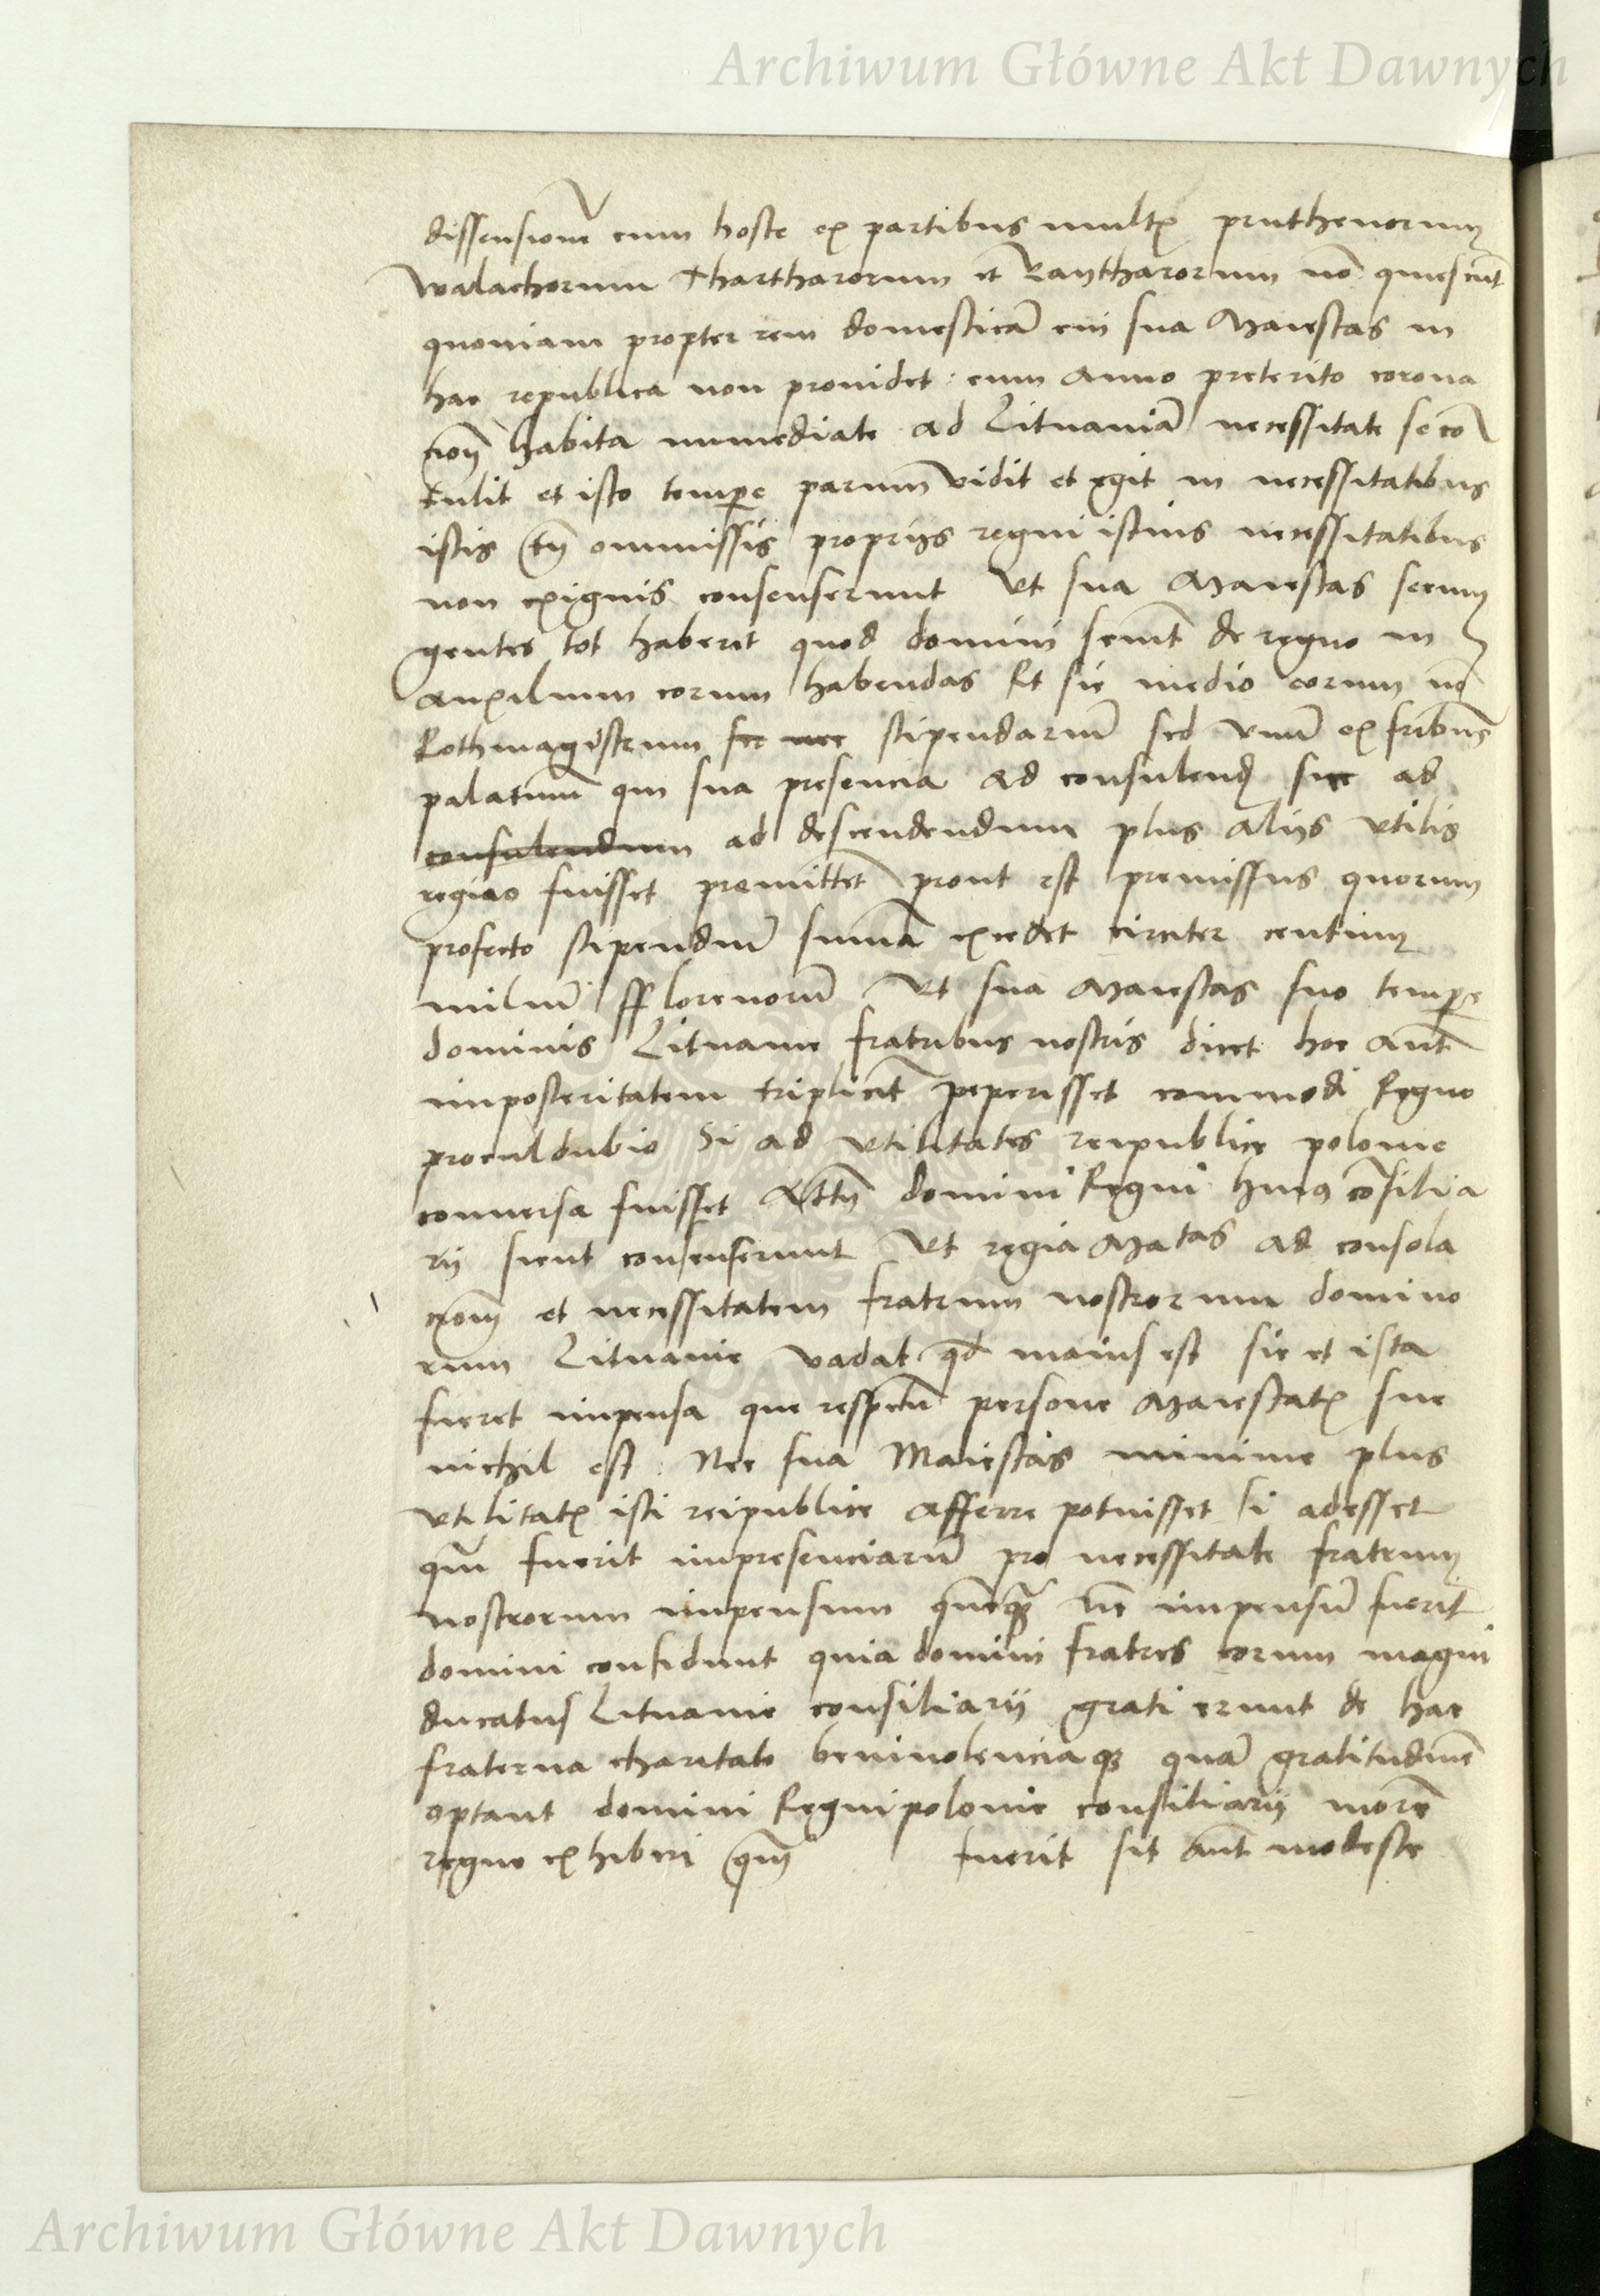 Archiwum Główne Akt Dawnych
dissensionē cum hoste ex partibus mult pruthenorum
walachorum Thartharorum et nō quiescūt
quoniam propter rem domesticā cui sua Maiestas in
hac republica non prouidet: cum anno preterito corona
cioñ habita immediate ad Lituaniā necessitate se cō
tulit et isto tempe parum vidit et egit in necessitatibus
istis tñ ommissis proprijs regni istius necessitatibus
non exiguis consenserunt Vt sua Maiestas secum
gentes tot haberet quod domini de regno in
auxilium eorum habendas Et sic medio eorum nō
Rothmagistrum stipendariū sed vnū ex fribus
palatinū qui sua presencia ad consulend siue ad
consulendum ad descendendum plus alijs vtilis
regiao fuisset premittet prout est premissus quorum
profecto stipendiū summā excedet circiter centum
miliū fflorenorū Vt sua Maiestas suo tempe
dominis Lituanie fratribus nostris dicet hoc aūt
imposteritatem triplicit peperisset commodi Regno
proculdubio Si ad vtilitates reipublice polonie
conuersa fuisset Attñ domini Regni huius cōsilia
rij sicut consenserunt Vt regia Matas ad consola
cioñ et necessitatem fratrum nostrorum domino
rum Lituanie vadat qd maius est sic et ista
fieret impensa que respectu persone Maiestat sue
nichil est. Nec sua Maiestas minime plus
vtilitat isti reipublice afferre potuisset si adesset
qm fuerit impresenciarū pro necessitate fratrum
nostrorum impensum impensū fuerit
domini confidunt quia domini fratres eorum magni
ducatus Lituanie consiliarij grati erunt de hac
fraterna charitate beniuolenciaq quā gratitudinē
optant domini Regni polonie consiliarij
regno exhiberi qm fuerit sit aūt modeste
Archiwum Główne Akt Dawnych